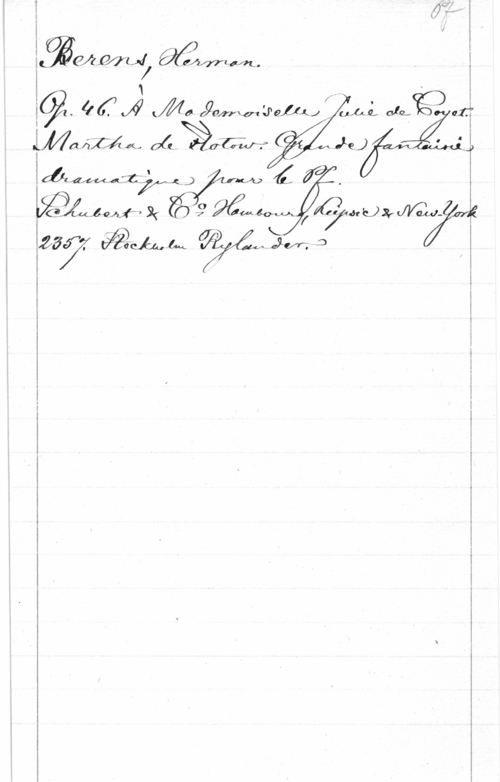 Pf.
Berens, Herman.
Op. 46. À Mademoiselle Julie de Coyet.
Martha de Flotow. Grande fantaisie
dramatique pour le Pf.
Schubert & Co Hambourg, Leipsic & New-York
2357. Stockholm Rylander.